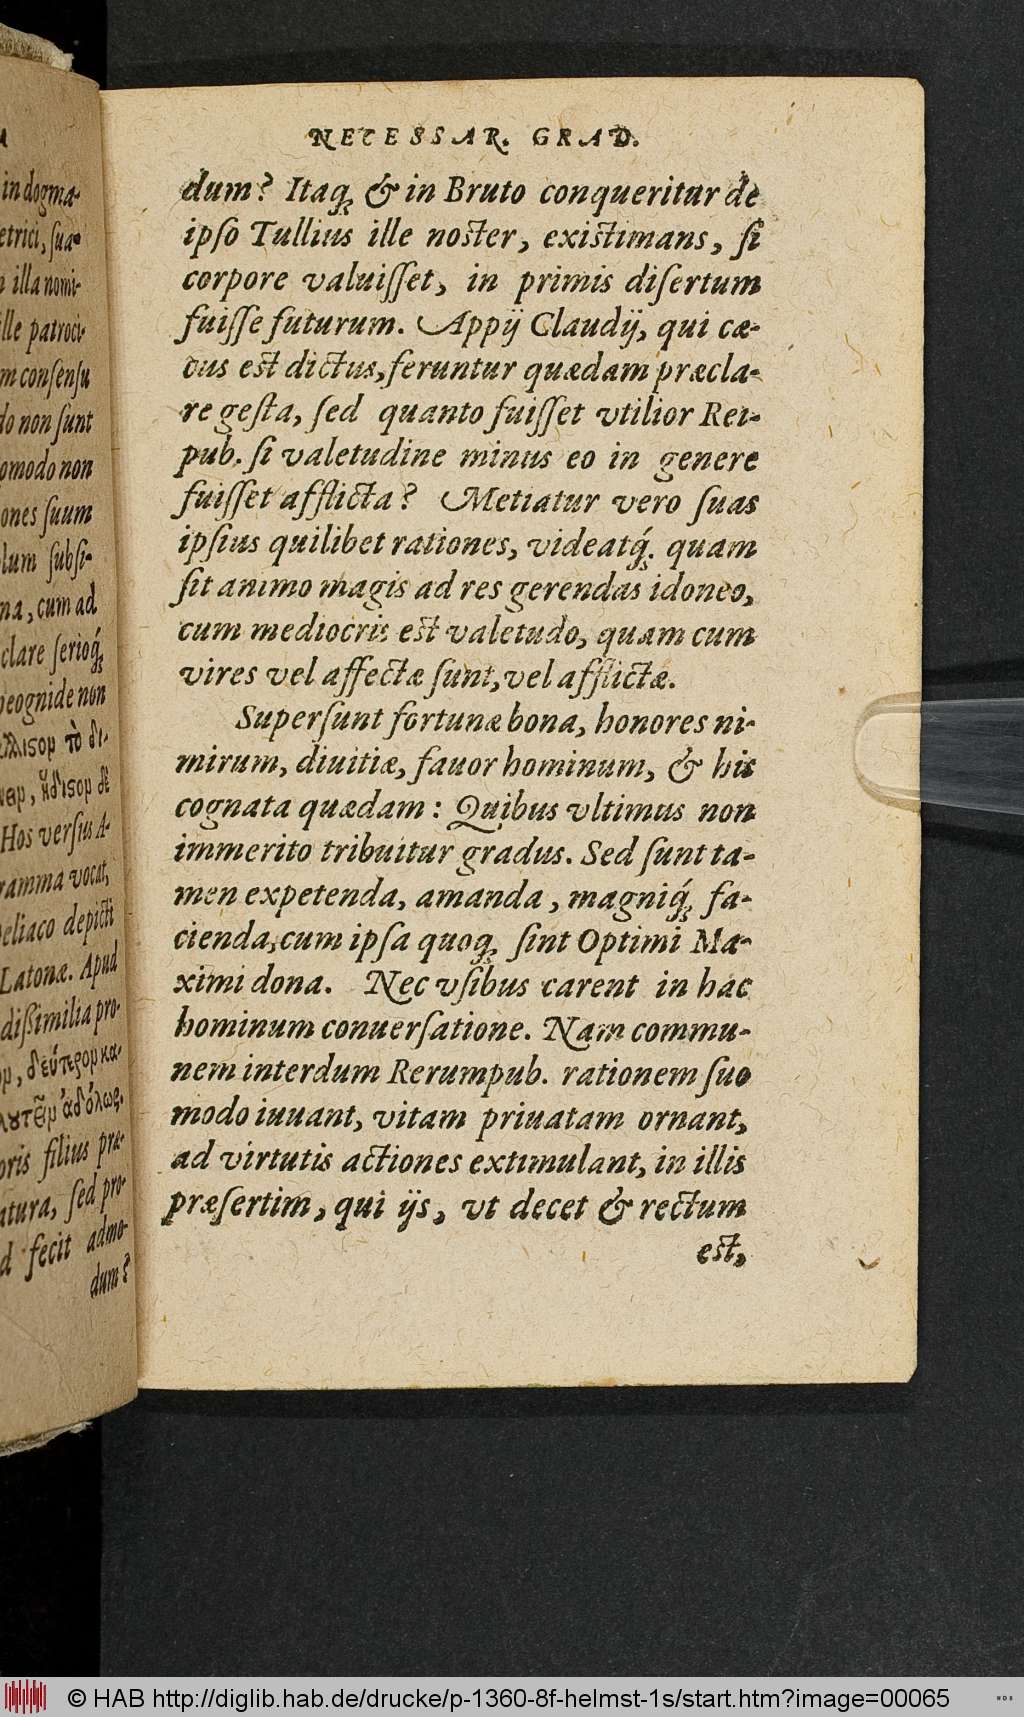 in dogma-
etrici, sua-
illa nomi-
ille patroci-
m consensu
do non sunt
omodo non
ones suum
olum subsi-
na, cum ad
clare serioq́;
heognide non
Hos versus A-
gramma vocat,
Deliaco depicti
Latonæ. Apud
dißimilia pro-
oris filius præ-
atura, sed pro-
d fecit admo-
dum?
NECESSAR. GRAD.
dum? Itaq; & in Bruto conqueritur de
ipso Tullius ille noster, existimans, si
corpore valuisset, in primis disertum
fuisse futurum. Appij Claudij, qui cæ-
cus est dictus, feruntur quædam præcla-
re gesta, sed quanto fuisset vtilior Rei-
pub. si valetudine minus eo in genere
fuisset afflicta? Metiatur vero suas
ipsius quilibet rationes, videatq́;. quam
sit animo magis ad res gerendas idoneo,
cum mediocris est valetudo, quam cum
vires vel affectæ sunt, vel afflictæ.
Supersunt fortunæ bona, honores ni-
mirum, diuitiæ, fauor hominum, & his
cognata quædam: Quibus vltimus non
immerito tribuitur gradus. Sed sunt ta-
men expetenda, amanda, magniq́; fa-
cienda, cum ipsa quoq; sint Optimi Ma-
ximi dona. Nec vsibus carent in hac
hominum conuersatione. Nam commu-
nem interdum Rerumpub. rationem suo
modo iuuant, vitam priuatam ornant,
ad virtutis actiones extimulant, in illis
præsertim, qui ijs, vt decet & rectum
est,
© HAB http://diglib.hab.de/drucke/p-1360-8f-helmst-1s/start.htm?image=00065